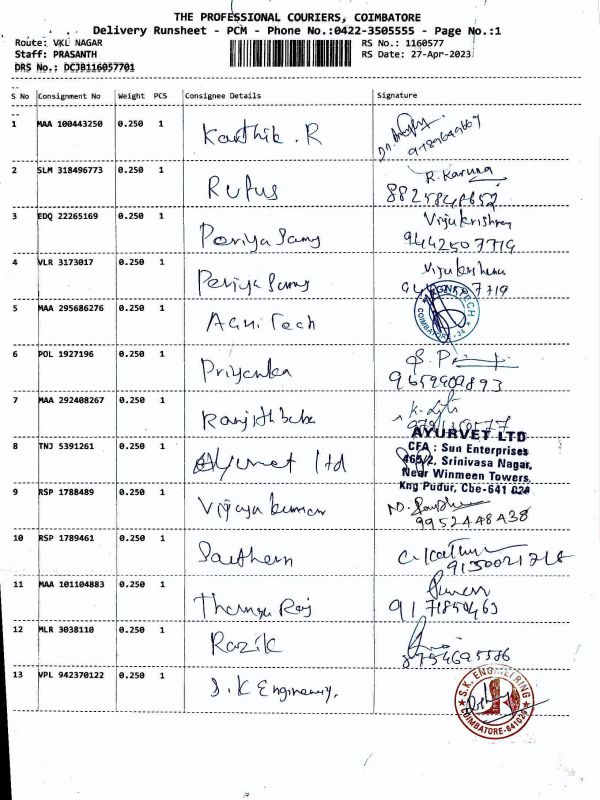 THE PROFESSIONAL COURIERS, COIMBATORE
Delivery Runsheet - PCM - Phone No.:0422-3505555 - Page No.:1
Route: VKL NAGAR RS No.: 1160577
Staff: PRASANTH RS Date: 27-Apr-2023
DRS No.: DCJB116057701
S No Consignment No Weight PCS Consignee Details Signature
1 MAA 100443250 0.250 1 Karthik . R
2 SLM 318496773 0.250 1 Rufus R. Karuna
8825848652
3 EDQ 22265169 0.250 1 Periya Samy Vijukrishnan
9442507719
4 VLR 3173017 0.250 1 Periya Samy
5 MAA 295686276 0.250 1 Agni Tech
COIMBATORE
6 POL 1927196 0.250 1 Priyanka
9659909893
7 MAA 292408267 0.250 1 Ranjith babu
8 TNJ 5391261 0.250 1 Ayurvet ltd AYURVET LTD
CFA : Sun Enterprises
465/2, Srinivasa Nagar,
Near Winmeen Towers,
Kng Pudur, Cbe-641 024
9 RSP 1788489 0.250 1 Vijaya kumar
9952448438
10 RSP 1789461 0.250 1
9150021718
11 MAA 101104883 0.250 1 Thanga Raj
9171850463
12 MLR 3038110 0.250 1 Razik
8754695586
13 VPL 942370122 0.250 1 S. K Engineering.
S.K. ENGINEERING
COIMBATORE-641029